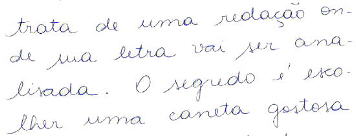 trata de uma redação on-
de sua letra vai ser ana-
lisada. O segredo é esco-
lher uma caneta gostosa